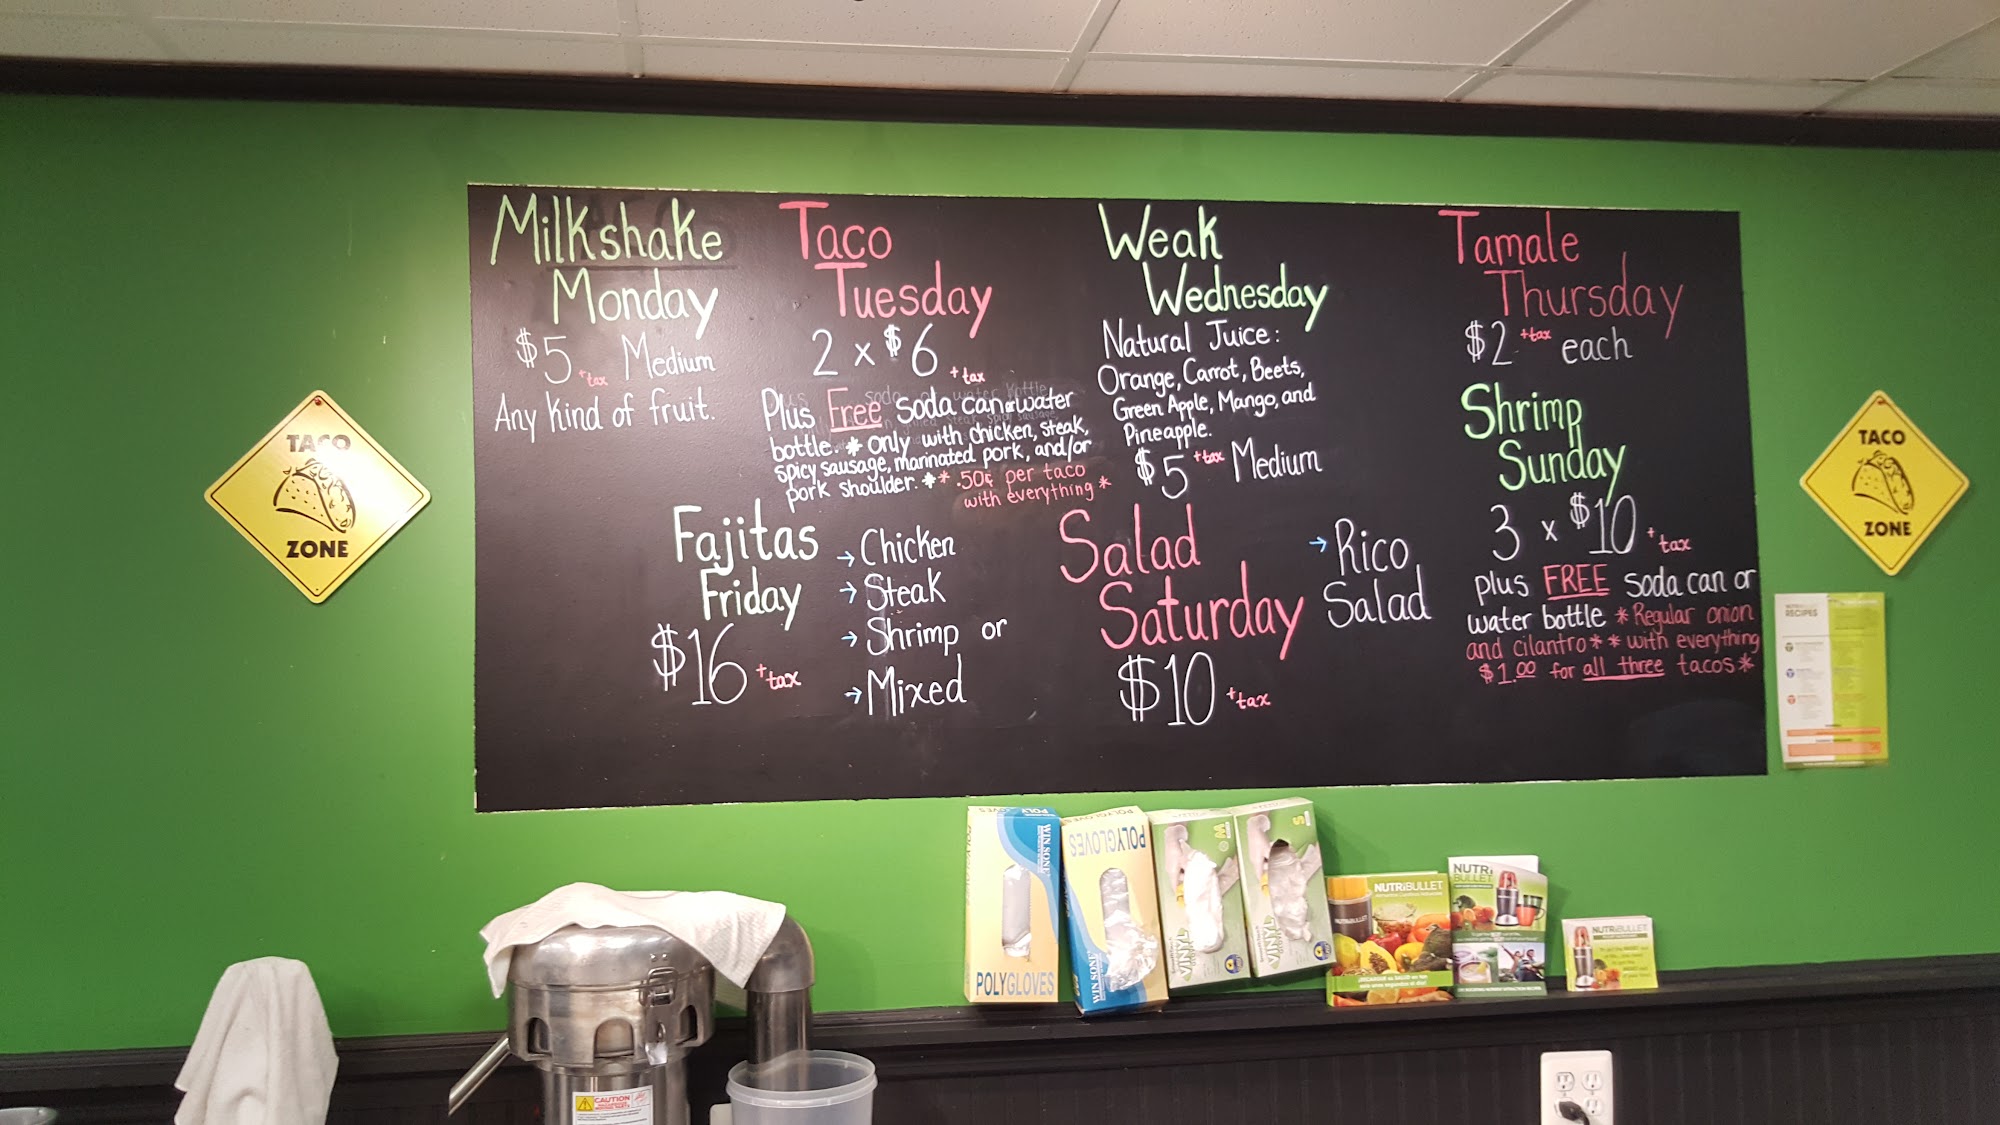 Milkshake
Monday
$5 +tax Medium
Any Kind of fruit.
Taco
Tuesday
2 x $6 +tax
Plus Free soda can or water
bottle. * only with chicken, steak,
spicy sausage, marinated pork, and/or
pork shoulder. * * .50¢ per taco
with everything *
Weak
Wednesday
Natural Juice:
Orange, Carrot, Beets,
Green Apple, Mango, and
Pineapple.
$5 +tax Medium
Tamale
Thursday
$2 +tax each
Fajitas
Friday
$16 +tax
→ Chicken
→ Steak
→ Shrimp or
→ Mixed
Salad
Saturday
$10 +tax
→ Rico
Salad
Shrimp
Sunday
3 x $10 +tax
plus FREE soda can or
water bottle * Regular onion
and cilantro * * with everything
$1.00 for all three tacos *
TACO
ZONE
TACO
ZONE
RECIPES
POLYGLOVES
WIN SONE
POLYGLOVES
WIN SONE
VINYL
M
VINYL
S
NUTRiBULLET
NUTRi
BULLET
NUTRiBULLET
CAUTION